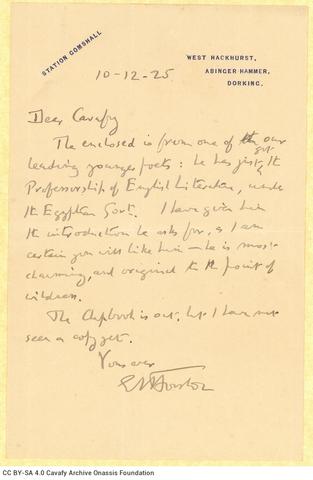 STATION GOMSHALL
WEST HACKHURST,
ABINGER HAMMER,
DORKING.
10-12-25
Dear Cavafy
The enclosed is from one of our
leading younger poets: he has just got the
Professorship of English Literature, under
the Egyptian Govt. I have given him
the introduction he asks for, & I am
certain you will like him – he is most
charming, and original to the point of
wildness.
The Chapbook is out, but I have not
seen a copy yet.
Yours ever
EMForster
CC BY-SA 4.0 Cavafy Archive Onassis Foundation